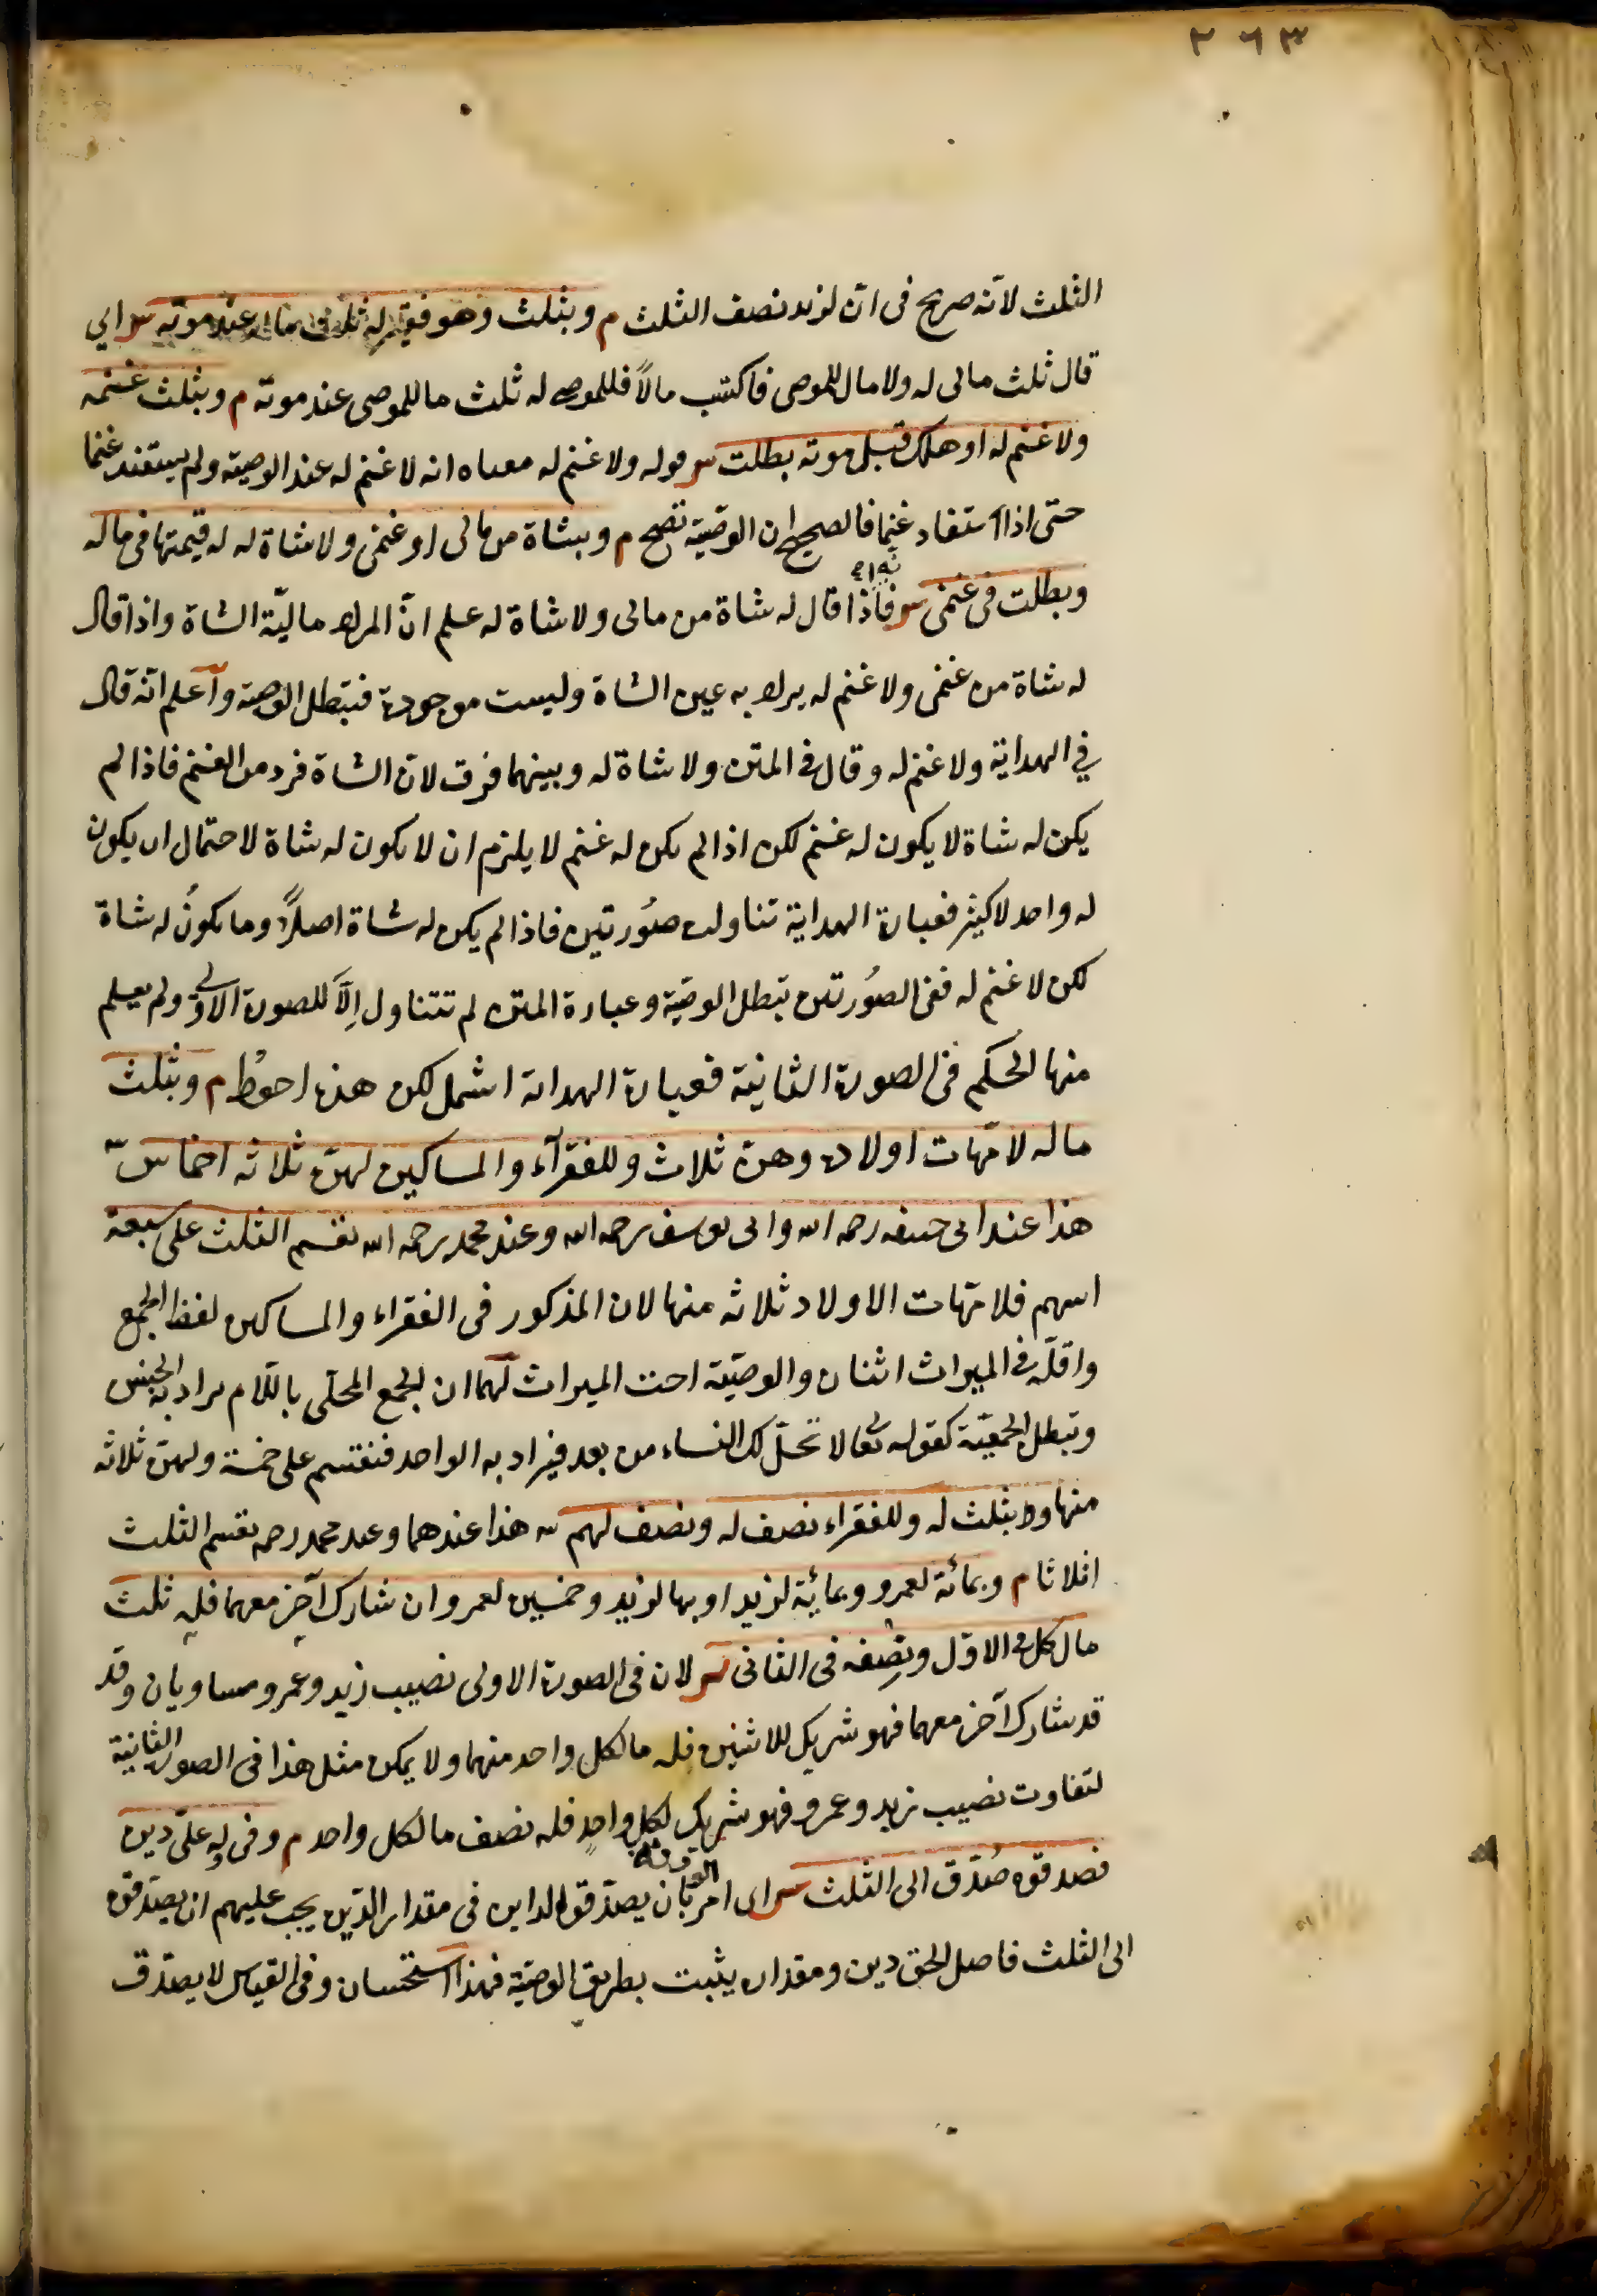 ٢٦٣
الثلث لانّه صريح فى انّ لزيد نصف الثلث م وبثلث وهو فقير له ثلث ماله عند موته س اى
قال ثلث مالى له ولا مال للموصى فاكتسب مالاً فللموصى له ثلث ما للموصى عند موته م وبثلث غنمه
ولا غنم له او هلك قبل موته بطلت س قوله ولا غنم له معناه انه لا غنم له عند الوصية ولم يستفد غنما
حتى اذا استفاد غنما فالصحيح ان الوصيّة تصح م وبشاة من مالى او غنمى ولا شاة له له قيمتها فى ماله
وبطلت فى غنمى س فاذا قال له شاة من مالى ولا شاة له علم انّ المراد ماليّة الشاة واذا قال
له شاة من غنمى ولا غنم له يراد به عين الشاة وليست موجودة فتبطل الوصية وآعلم انّه قال
فى الهداية ولا غنم له وقال فى المتن ولا شاة له وبينهما فرق لان الشاة فرد من الغنم فاذا لم
يكن له شاة لا يكون له غنم لكن اذا لم يكن له غنم لا يلزم ان لا يكون له شاة لاحتمال ان يكون
له واحد لا كثير فعبارة الهداية تناولت صُورتين فاذا لم يكن له شاة اصلاً وما يكونُ له شاة
لكن لا غنم له ففى الصُورتين تبطل الوصيّة وعبارة المتن لم تتناول اِلّا للصورة الاولى ولم يعلم
منها الحكم فى الصورة الثانية فعبارة الهداية اشمل لكن هذه احوط م وبثلث
ماله لامّهات اولاده وهنّ ثلاث وللفقرآء والمساكين لهنّ ثلاثه اخماس س
هذا عند ابى حنيفه رحمه الله وابى يوسف رحمه الله وعند محمد رحمه الله يقسم الثلث على سبعة
اسهم فلامّهات الاولاد ثلاثه منها لان المذكور فى الفقراء والمساكين لفظ الجمع
واقلّه فى الميراث اثنان والوصيّة اخت الميراث لهما ان الجمع المحلّى باللّام يراد به الجنس
وتبطل الجمعيّة كقوله تعالى لا تحلّ لك النساء من بعد فيراد به الواحد فنقسم على خمسة ولهنّ ثلاثه
منها وبثلث له وللفقراء نصف له ونصف لهم س هذا عندهما وعند محمد رحمه يقسم الثلث
اثلاثا م وبمائة لعمرو وبمائة لزيد او بها لزيد وخمسين لعمرو ان شارك آخر معهما فله ثلث
مال كل فى الاوّل ونصفه فى الثانى س لان فى الصورة الاولى نصيب زيد وعمرو مساويان وقد
قد شارك آخر معهما فهو شريك للاثنين فله ما لكل واحد منهما ولا يمكن مثل هذا فى الصورة الثانية
لتفاوت نصيب زيد وعمرو فهو شريك لكل واحدٍ فله نصف ما لكل واحد م وفى له علىّ دين
فصدقوه صُدّق الى الثلث س اى امر الورثة بان يصدّقوا الداين فى مقدار الدّين يجب عليهم ان يصدّقوه
الى الثلث فاصل الحق دين ومقداره يثبت بطريق الوصيّة فهذا استحسان وفى القياس لا يصدّق